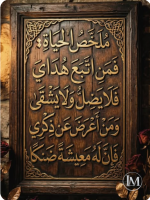 مُلَخَّصُ الحَيَاةِ:
فَمَنِ اتَّبَعَ هُدَايَ
فَلَا يَضِلُّ وَلَا يَشْقَى
وَمَنْ أَعْرَضَ عَنْ ذِكْرِي
فَإِنَّ لَهُ مَعِيشَةً ضَنْكًا
LM